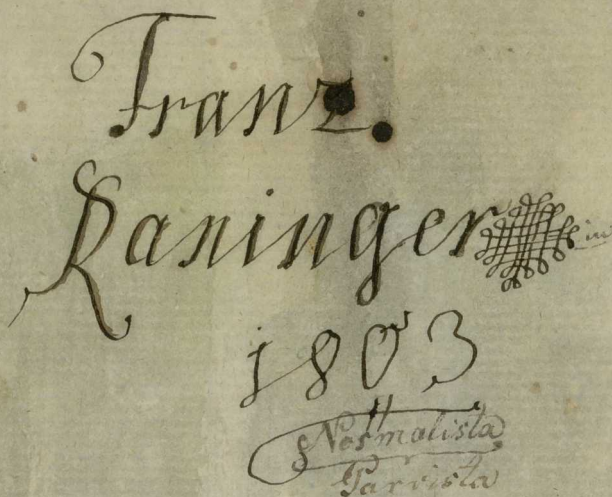 Franz.
Raninger
1803
Normalista
Parvista